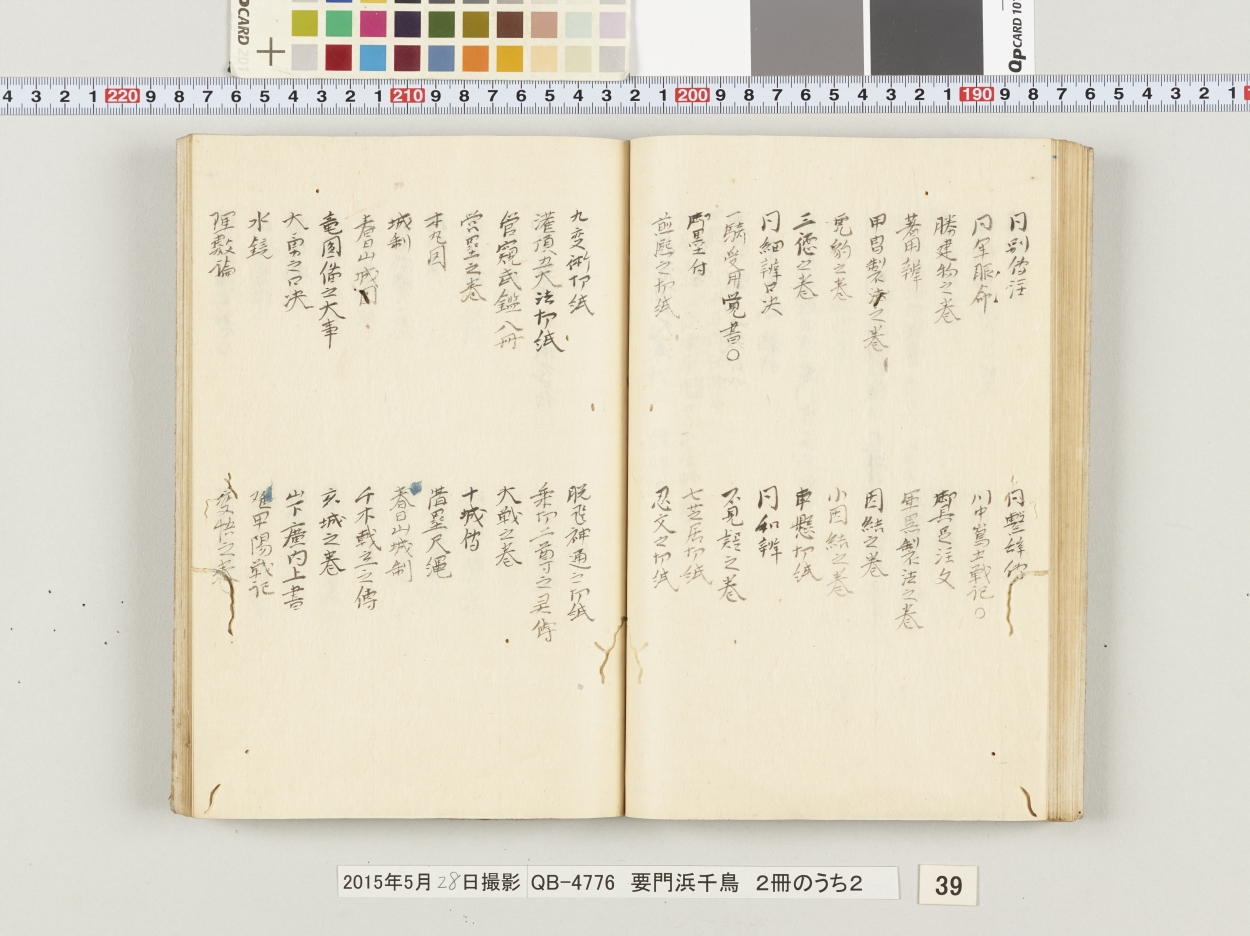 同別傳注
同軍脈命
勝建物之巻
著用辨
甲冑製法之巻
虎豹之巻
三徳之巻
同細辨口决
一騎受用覚書○
御墨付
煎熈之切紙
同聲辞傳
川中嶋五戦記○
御具足注文
軍器製法之巻
因結之巻
小因結之巻
車懸切紙
同和辨
不見越之巻
七芝居切紙
忍文之切紙
九变術切紙
灌頂五大法切紙
管窺武鑑八冊
営塁之巻
本丸図
城制
春日山城図
竜図備之大事
大勇之口决
水鏡
理數論
脱飛神通之切紙
乗切二尊之灵傳
大戦之巻
十城傳
借墨尺縄
春日山城制
千木戦立之傳
玄城之巻
山下廣内上書
理甲陽戦記
变悟之巻
2015年5月28日撮影
QB-4776 要門浜千鳥 2冊のうち2
39
4 3 2 1 220 9 8 7 6 5 4 3 2 1 210 9 8 7 6 5 4 3 2 1 200 9 8 7 6 5 4 3 2 1 190 9 8 7 6 5 4 3 2 1
QPCARD 201
QPCARD 101